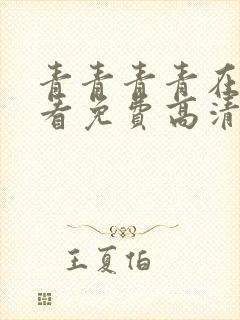 青青青青在
看免费高清
王夏伯